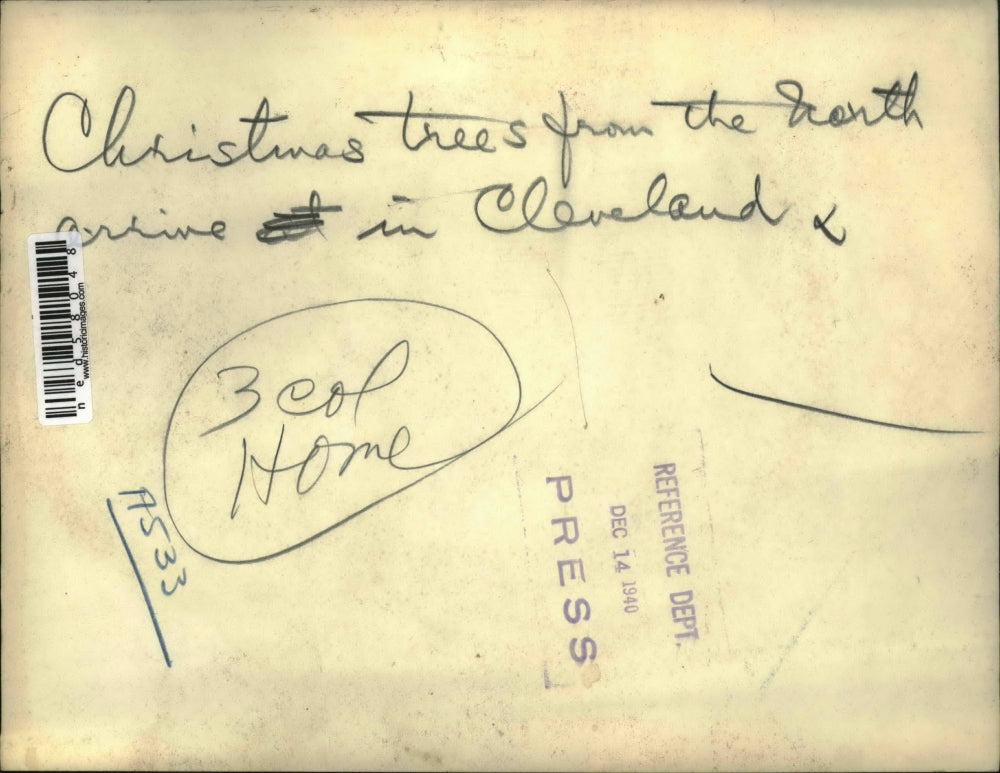 Christmas trees from the North
arrive in Cleveland
3 col
Home
A533
REFERENCE DEPT.
DEC 14 1940
PRESS
ned58048
www.historicimages.com